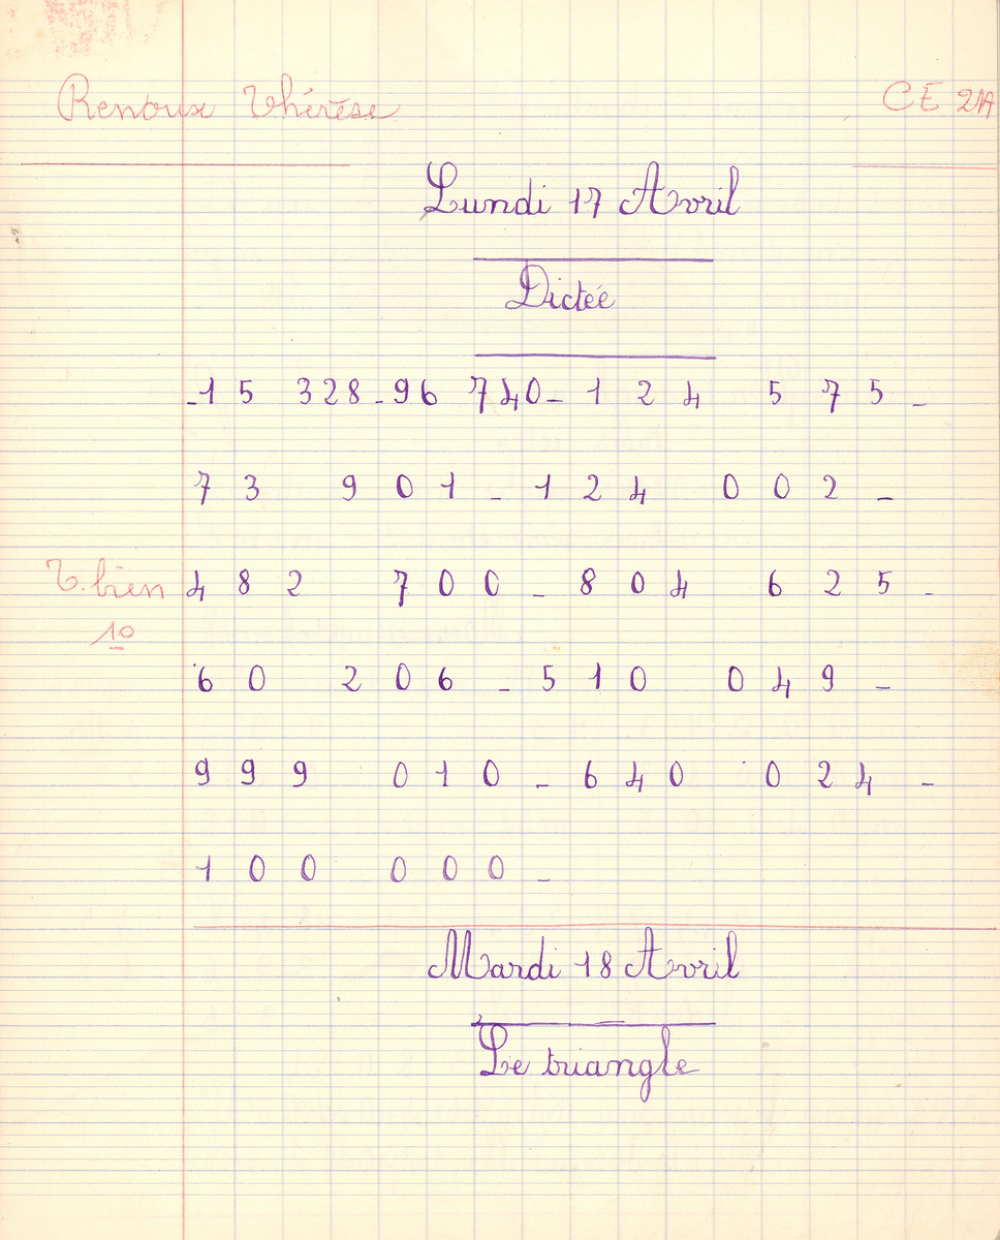 Renoux Thérèse CE 2A
Lundi 17 Avril
Dictée
-15 328-96 740-124 575-
73 901-124 002-
482 700-804 625-
T. bien
10
60 206-510 049-
999 010-640 024-
100 000-
Mardi 18 Avril
Le triangle